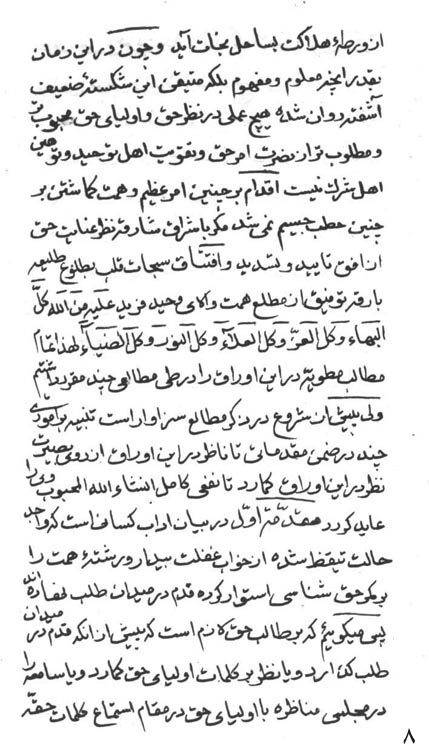 از ورطهٔ هلاکت بساحل نجات آید و چون در این زمان
بقدر انچه معلوم و مفهوم بلکه متیقن این شکستهٔ ضعیف
آشفته روان شده هیچ عملی در نظر حق و اولیای حق محبوب تر
و مطلوب تر از نصرت امر حق و تقویت اهل توحید و توهین
اهل شرک نیست اقدام بر چنین امر عظیم و همت گماشتن بر
چنین خطب جسیم نمی شد مگر باشراق شارقهٔ نظر عنایت حق
از افق تایید و تسدید و افتتاق سبحات قلب بطلوع طلیعه
بارقهٔ توفیق از مطلع همت والای وحید فرید علیه من الله کل
البهاء و کل العز و کل العلاء و کل النور و کل الضیاء لهذا تمام
مطالب مطویه در این اوراق را در طی مطالعی چند مقرر داشتیم
ولی پیش از شروع در ذکر مطالع سزاوار است تنبیه بر اموری
چند در ضمن مقدماتی تا ناظر در این اوراق از روی بصیرت
نظر در این اوراق گمارد تا نفعی کامل انشاء الله المحبوب وی را
عاید گردد مقدمهٔ اول در بیان اداب کسانی است که واجد
حالت تیقظ شده از خواب غفلت بیدار و رشتهٔ همت را
بر کمر حق شناسی استوار کرده قدم در میدان طلب نهاده اند
پس میگوئیم که بر طالب حق لازم است که پیش از انکه قدم در میدان
طلب گذارد و یا نظر بر کلمات اولیای حق گمارد و یا سامعه را
در مجلس مناظره با اولیای حق در مقام استماع کلمات حقه
۸